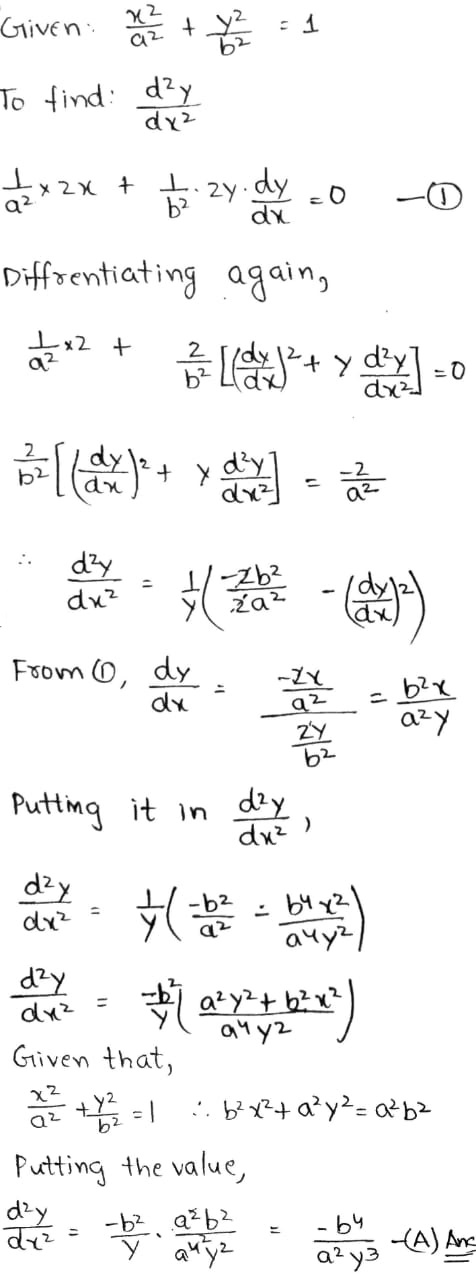 Given: x²/a² + y²/b² = 1
To find: d²y/dx²
1/a² × 2x + 1/b² · 2y · dy/dx = 0 —①
Diffrentiating again,
1/a² × 2 + 2/b² [(dy/dx)² + y d²y/dx²] = 0
2/b² [(dy/dx)² + y d²y/dx²] = -2/a²
∴ d²y/dx² = 1/y (-2b²/2a² - (dy/dx)²)
From ①, dy/dx = (-2x/a²)/(2y/b²) = b²x/a²y
Putting it in d²y/dx²,
d²y/dx² = 1/y (-b²/a² - b⁴x²/a⁴y²)
d²y/dx² = -b²/y (a²y² + b²x²/a⁴y²)
Given that,
x²/a² + y²/b² = 1 ∴ b²x² + a²y² = a²b²
Putting the value,
d²y/dx² = -b²/y · a²b²/a⁴y² = -b⁴/a²y³ -(A) Ans